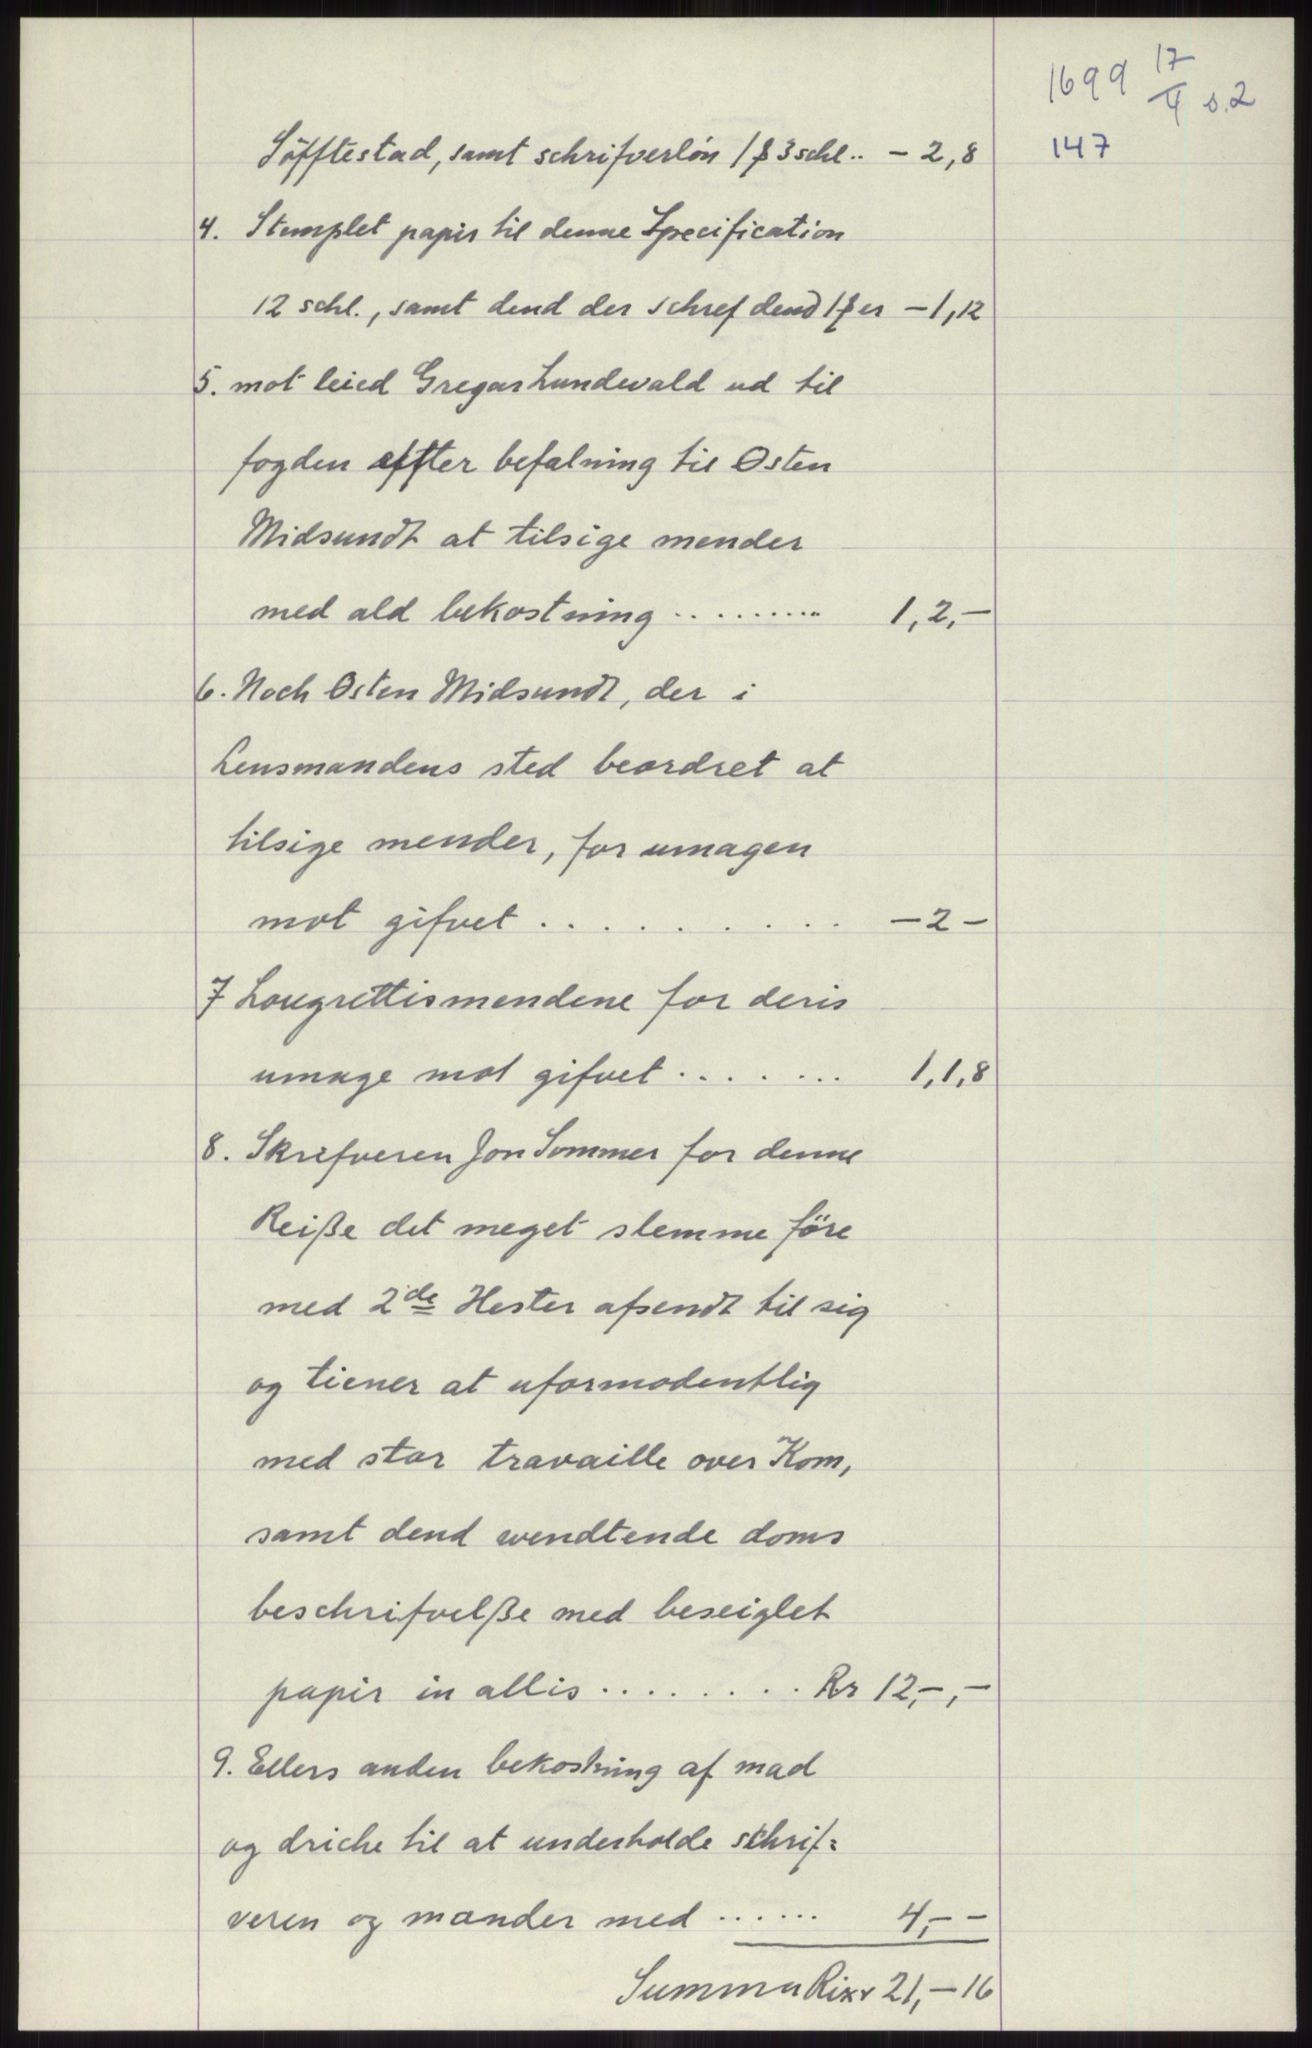 1699 17/4 s.2
147
Söfftestad, samt schrifverlön 1 ß 3 schl.. - 2,8
4. Stemplet papir til denne Specification
12 schl., samt dend der schref dend 1 ß er - 1,12
5. mot leied Gregar Lundevald ud til
fogden effter befalning til Osten
Midsundt at tilsige mender
med ald bekostning ......... 1,2,-
6. Noch Osten Midsundt, der i
Lensmandens sted beordret at
tilsige mender, for umagen
mot gifvet .......... - 2 -
7 Lougrettismendene for deris
umage mot gifvet ....... 1,1,8
8. Skrifveren Jon Sommer for denne
Reiße det meget slemme före
med 2de Hester afsendt til sig
og tiener at uformodentlig
med stor travaille over Kom,
samt dend wendtende doms
beschrifvelße med beseiglet
papir in allis ........ Rr 12,-,-
9. Ellers anden bekostning af mad
og driche til at underholde schrif=
veren og mander med ...... 4,- -
Summa Rixr 21,- 16